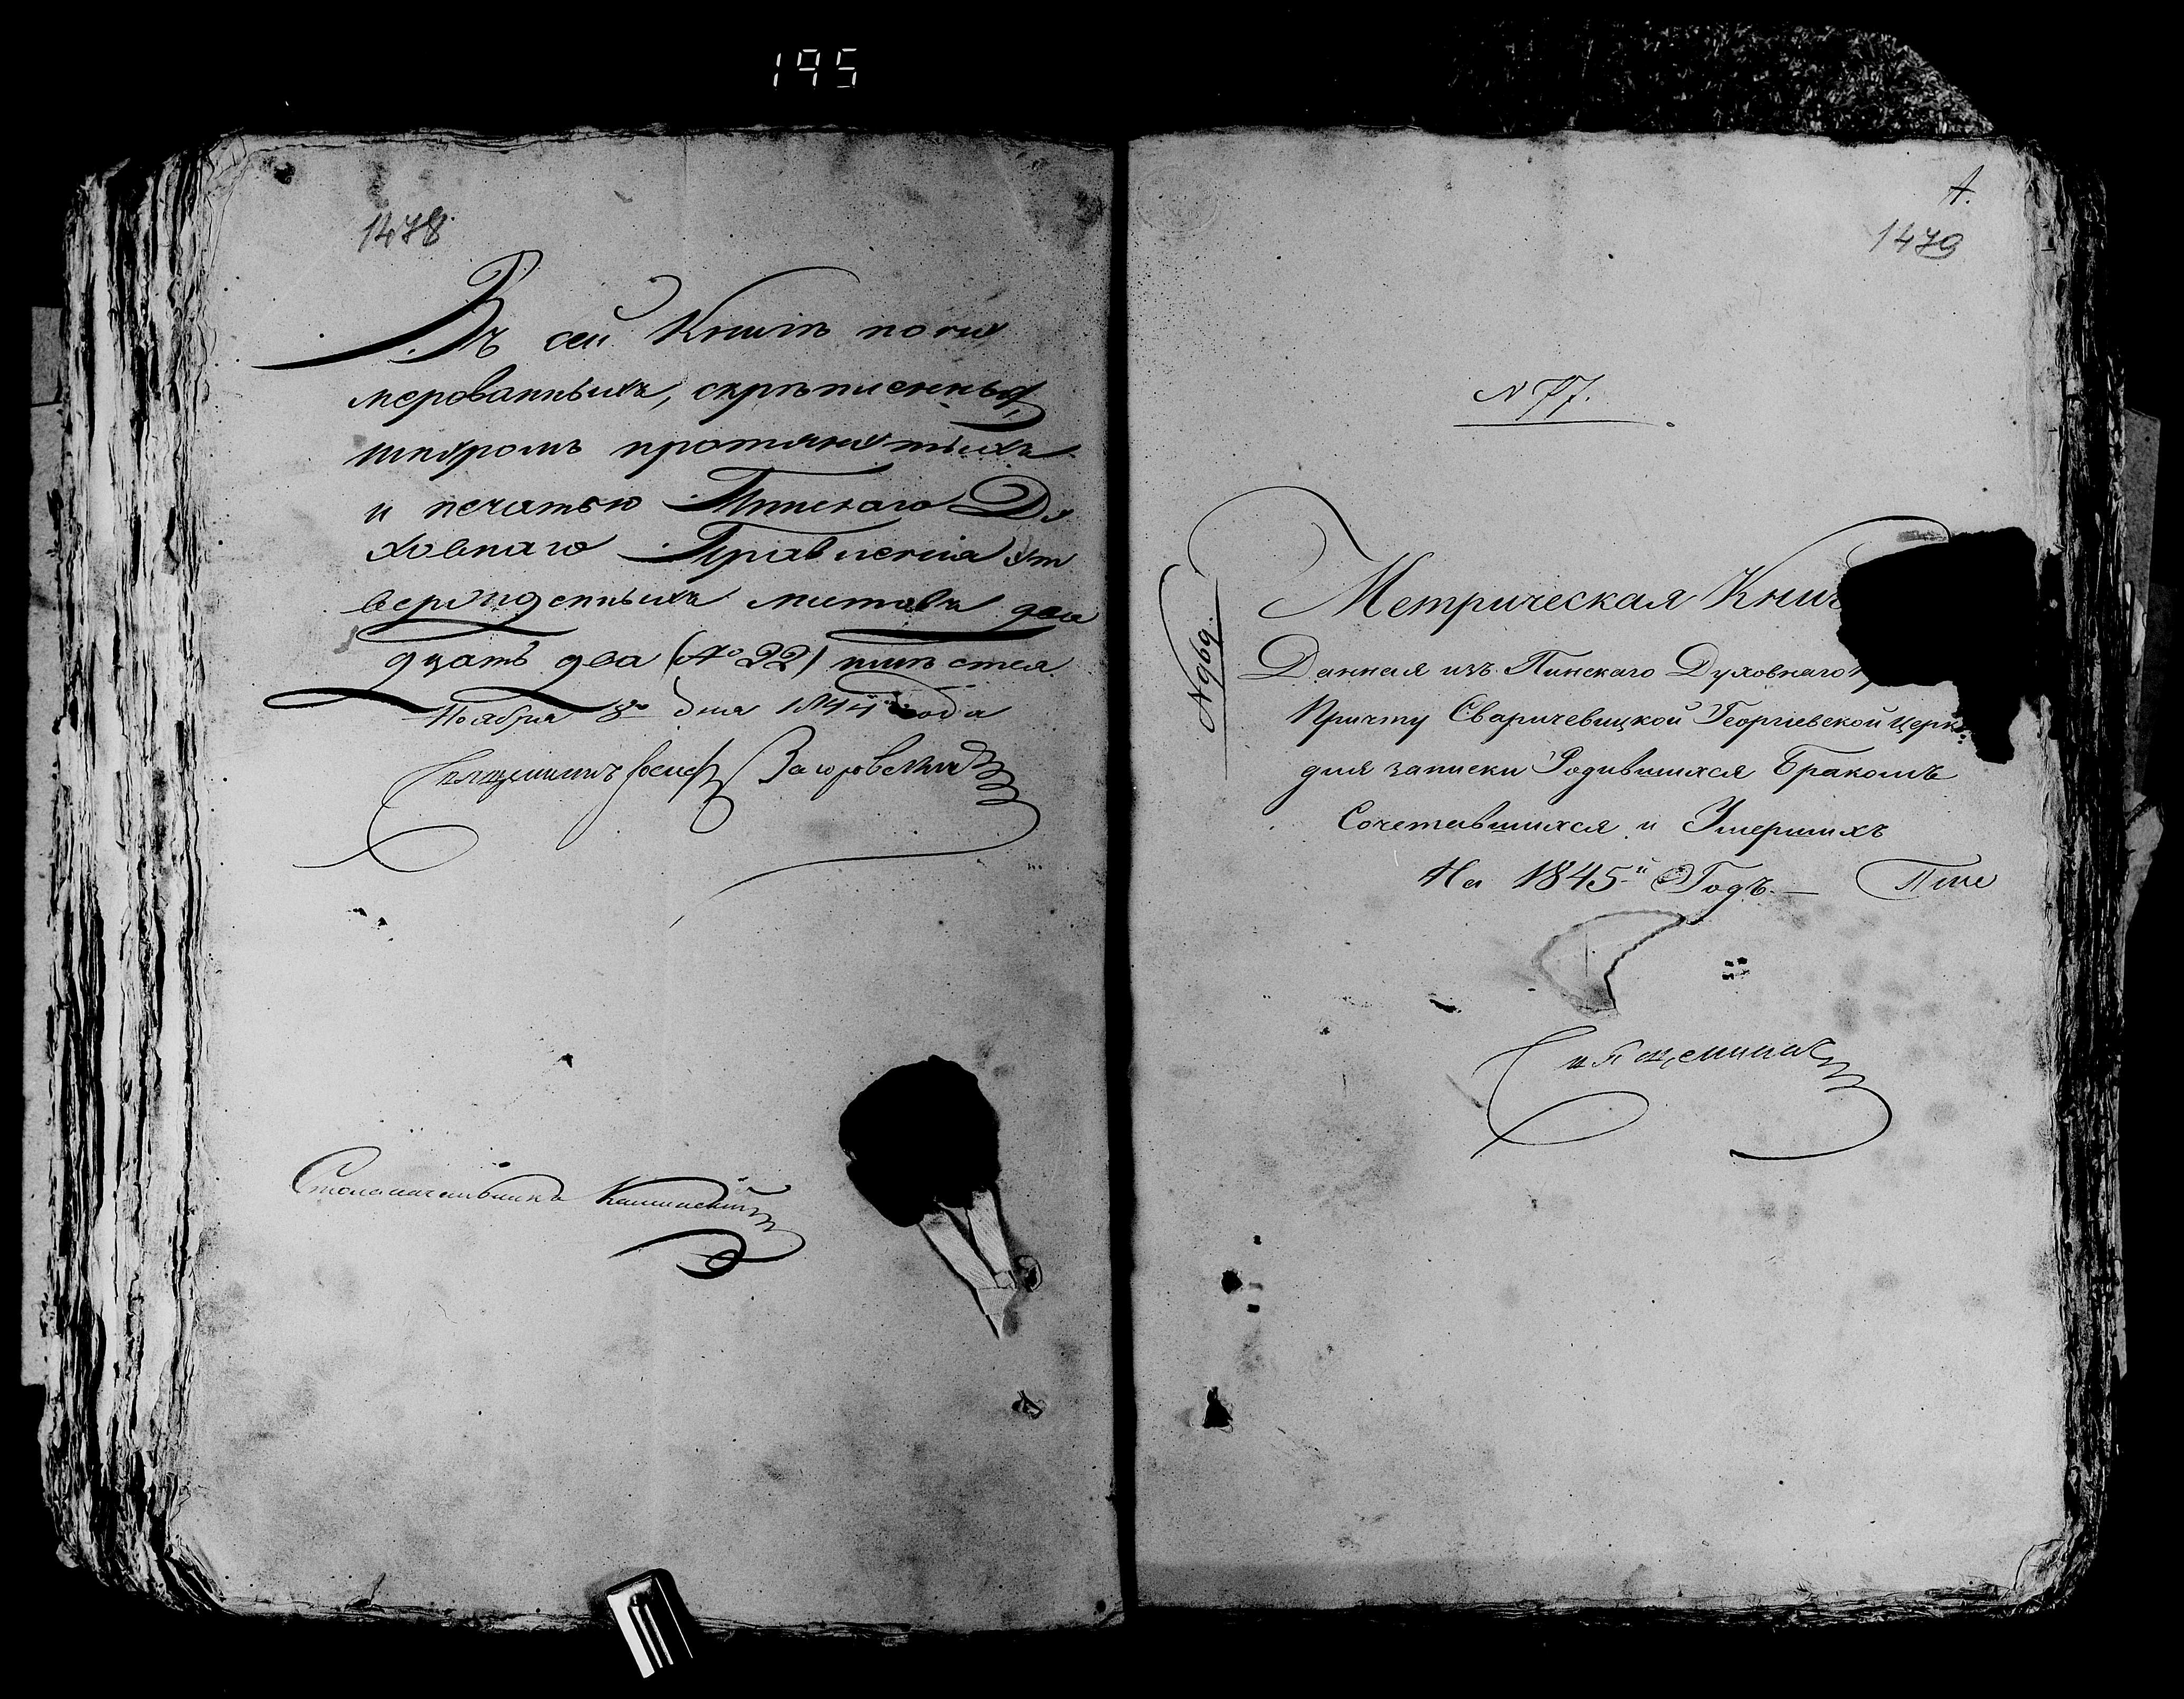 195
1478
Въ сей Книгѣ пону
мерованныхъ, скрѣпленныхъ,
шнуромъ протянутыхъ
и печатью Пинскаго Ду
ховнаго Правленія ут
вержденныхъ листовъ два
дцать два (№ 22) имѣется.
Ноября 8го дня 1844 года
Священникъ Іосифъ Загоровскій
Столоначальникъ Каминскій
А.
1479
N 77.
N 969.
Метрическая Книг
Данная изъ Пинскаго Духовнаго
Причту Сваричевицкой Георгіевской Церк
для записки Родившихся Бракомъ
Сочетавшихся и Умершихъ
На 1845й Годъ.
Священникъ